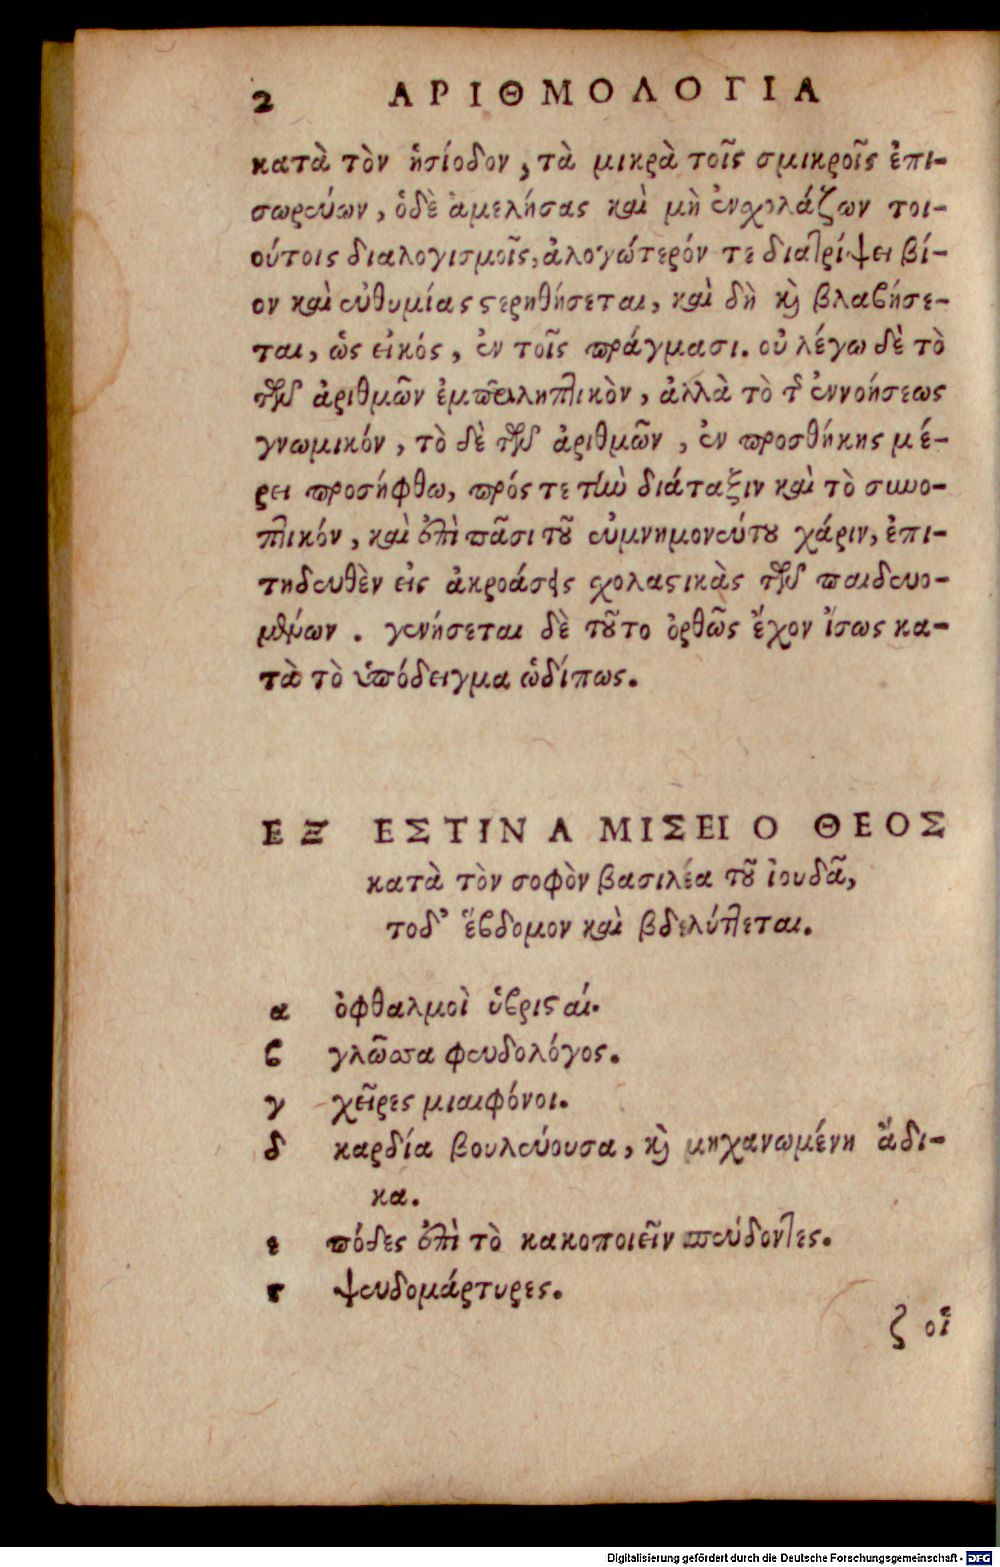 2 ΑΡΙΘΜΟΛΟΓΙΑ
κατὰ τὸν ἡσίοδον, τὰ μικρὰ τοῖς σμικροῖς ἐπι-
σωρεύων, ὁδὲ ἀμελήσας καὶ μὴ ἐνσχολάζων τοι-
ούτοις διαλογισμοῖς, ἀλογώτερόν τε διατρίψει βί-
ον καὶ εὐθυμίας στερηθήσεται, καὶ δὴ καὶ βλαβήσε-
ται, ὡς εἰκός, ἐν τοῖς πράγμασι. οὐ λέγω δὲ τὸ
τῶν ἀριθμῶν ἐμπεριληπτικὸν, ἀλλὰ τὸ τῆς ἐννοήσεως
γνωμικόν, τὸ δὲ τῶν ἀριθμῶν, ἐν προσθήκης μέ-
ρει προσήφθω, πρός τε τὴν διάταξιν καὶ τὸ συνο-
πτικόν, καὶ ἐπὶ πᾶσι τοῦ εὐμνημονεύτου χάριν, ἐπι-
τηδευθὲν εἰς ἀκροάσεις σχολαστικὰς τῶν παιδευο-
μένων. γενήσεται δὲ τοῦτο ὀρθῶς ἔχον ἴσως κα-
τὰ τὸ ὑπόδειγμα ὡδίπως.
ΕΞ ΕΣΤΙΝ Α ΜΙΣΕΙ Ο ΘΕΟΣ
κατὰ τὸν σοφὸν βασιλέα τοῦ ἰουδᾶ,
τοδ' ἕβδομον καὶ βδελύπτεται.
α ὀφθαλμοὶ ὑβρισταί.
β γλῶσσα ψευδολόγος.
γ χεῖρες μιαιφόνοι.
δ καρδία βουλεύουσα, καὶ μηχανωμένη ἄδι-
κα.
ε πόδες ἐπὶ τὸ κακοποιεῖν σπεύδοντες.
ϛ ψευδομάρτυρες.
ζ οἱ
Digitalisierung gefördert durch die Deutsche Forschungsgemeinschaft - DFG